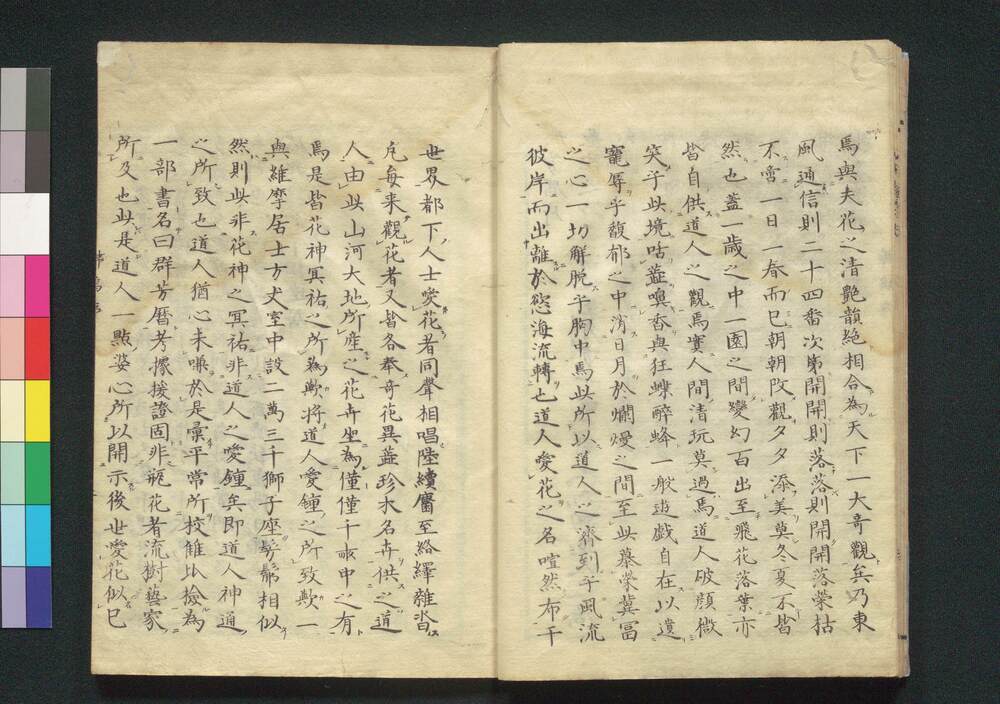 焉與夫花之清艶韻絶相合為天下一大奇觀矣乃東
風通信則二十四番次第開開則落落則開開落榮枯
不啻一日一春而已朝朝改觀夕夕添美莫冬夏不皆
然也蓋一歲之中一園之間變幻百出至飛花落葉亦
皆自供道人之觀焉實人間清玩莫過焉道人破顏微
笑于此境咕蘂嗅香與狂蝶醉蜂一般遊戲自在以遺
寵辱乎馥郁之中消日月於爛熳之間至此慕榮冀冨
之心一切解脫乎胸中焉此所以道人之齊到乎風流
彼岸而出離於慾海流轉也道人愛花之名喧然布于
世界都下人士愛花者同聲相唱陸續屬至絡繹雜沓
凡每来觀花者又皆各奉奇花異蘂珍木名卉供之道
人由此山河大地所產之花卉坐為僅僅千畝中之有
焉是皆花神冥祐之所為歟將道人愛鍾之所致歟一
與維摩居士方丈室中設二萬三千獅子座髣髴相似
然則此非花神之冥祐非道人之愛鍾矣即道人神通
之所致也道人猶心未嗛於是彙平常所挍雠比撿為
一部書名曰群芳暦考據援證固非瓶花者流樹藝家
所及也此是道人一點婆心所以開示後世愛花似已